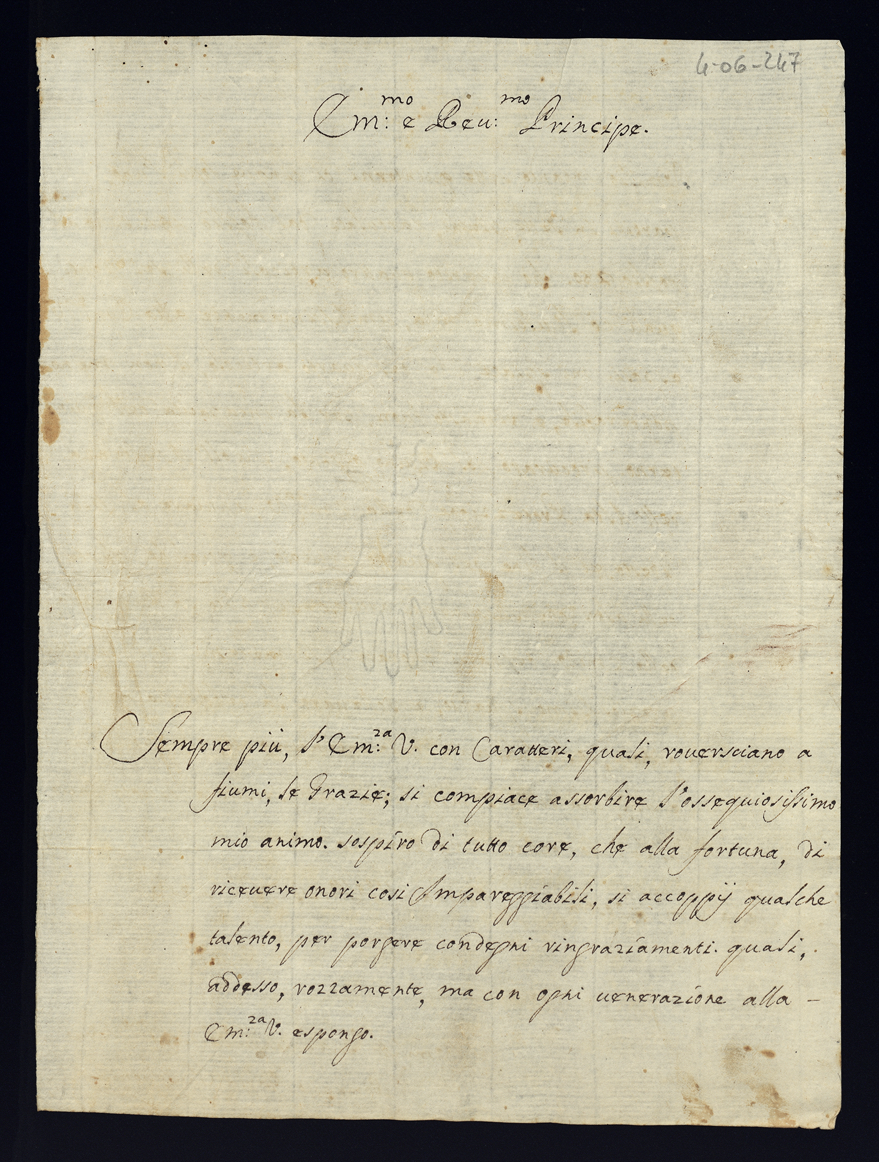 4-06-247
Em:mo e Reu:mo Principe.
Sempre più, l'Em:za V. con Caratteri, quali, rouersciano a
fiumi, le Grazie; si compiace assorbire l'ossequiosissimo
mio animo. sospiro di tutto core, che alla fortuna, di
riceuere onori cosi Impareggiabili, si accoppij qualche
talento, per porgere condegni ringraziamenti. quali,
addesso, rozzamente, ma con ogni uenerazione alla -
Em:za V. espongo.